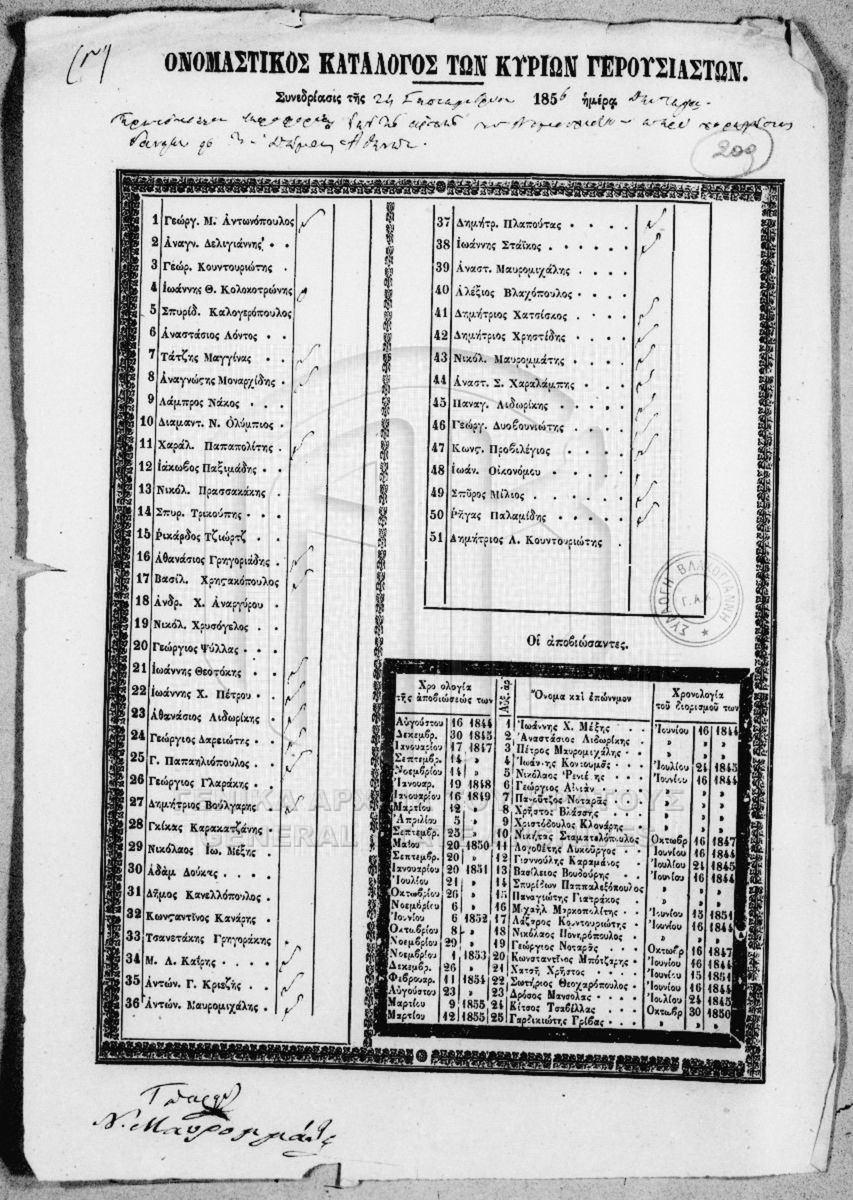 ΟΝΟΜΑΣΤΙΚΟΣ ΚΑΤΑΛΟΓΟΣ ΤΩΝ ΚΥΡΙΩΝ ΓΕΡΟΥΣΙΑΣΤΩΝ.
Συνεδρίασις τῆς 24 Σεπτεμβρίου 1856 ἡμέρα
209
1 Γεώργ. Μ. Ἀντωνόπουλος
2 Ἀναγν. Δελιγιάννης
3 Γεώρ. Κουντουριώτης
4 Ἰωάννης Θ. Κολοκοτρώνης
5 Σπυρίδ. Καλογερόπουλος
6 Ἀναστάσιος Λόντος
7 Τάτζης Μαγγίνας
8 Ἀναγνώτης Μοναρχίδης
9 Λάμπρος Νάκος
10 Διαμαντ. Ν. Ὀλύμπιος
11 Χαράλ. Παπαπολίτης
12 Ἰάκωβος Παξιμάδης
13 Νικόλ. Πρασσακάκης
14 Σπυρ. Τρικούπης
15 Ῥικάρδος Τζιώρτζ
16 Ἀθανάσιος Γρηγοριάδης
17 Βασίλ. Χρηςακόπουλος
18 Ἀνδρ. Χ. Ἀναργύρου
19 Νικόλ. Χρυσόγελος
20 Γεώργιος Ψύλλας
21 Ἰωάννης Θεοτόκης
22 Ἰωάννης Χ. Πέτρου
23 Ἀθανάσιος Λιδωρίκης
24 Γεώργιος Δαρειώτης
25 Γ. Παπαηλιόπουλος
26 Γεώργιος Γλαράκης
27 Δημήτριος Βούλγαρης
28 Γκίκας Καρακατζάνης
29 Νικόλαος Ἰω. Μέξης
30 Ἀδὰμ Δούκας
31 Δῆμος Κανελλόπουλος
32 Κωνςαντῖνος Κανάρης
33 Τσανετάκης Γρηγοράκης
34 Μ. Λ. Καΐρης
35 Ἀντών. Γ. Κριεζῆς
36 Ἀντών. Μαυρομιχάλης
37 Δημήτρ. Πλαπούτας
38 Ἰωάννης Στάϊκος
39 Ἀναστ. Μαυρομιχάλης
40 Ἀλέξιος Βλαχόπουλος
41 Δημήτριος Χατσίσκος
42 Δημήτριος Χρηστίδης
43 Νικόλ. Μαυρομμάτης
44 Ἀναστ. Σ. Χαραλάμπης
45 Παναγ. Λιδωρίκης
46 Γεώργ. Δυοβουνιώτης
47 Κωνς. Προβιλέγιος
48 Ἰωάν. Οἰκονόμου
49 Σπῦρος Μίλιος
50 Ῥήγας Παλαμίδης
51 Δημήτριος Λ. Κουντουριώτης
ΣΥΛΛΟΓΗ ΒΛΑΧΟΓΙΑΝΝΗ
Γ.Α.Κ
Οἱ ἀποβιώσαντες.
Χρο ολογία τῆς ἀποβιώσεώς των Αὔξ. ἀρ Ὄνομα καὶ ἐπώνυμον Χρονολογία τοῦ διορισμοῦ των
Αὐγούστου 16 1844 1 Ἰωάννης Χ. Μέξης Ἰουνίου 16 1844
Δεκεμβρ. 30 1845 2 Ἀναστάσιος Λιδωρίκης » » »
Ἰανουαρίου 17 1847 3 Πέτρος Μαυρομιχάλης » » »
Σεπτεμβρ. 14 » 4 Ἰωάννης Κοντουμᾶς Ἰουλίου 24 1845
Νοεμβρίου 14 » 5 Νικόλαος Ῥενιέρης Ἰουνίου 16 1844
Ἰανουαρ. 19 1848 6 Γεώργιος Αἰνιὰν » » »
Ἰανουαρίου 16 1849 7 Πανοῦτζος Νοταρᾶς » » »
Μαρτίου 12 » 8 Χρῆστος Βλάσσης » » »
Ἀπριλίου 5 » 9 Χριστόδουλος Κλονάρης » » »
Σεπτεμβρ. 25 » 10 Νικήτας Σταματελόπουλος Ὀκτωβρ 16 1847
Μαΐου 20 1850 11 Λογοθέτης Λυκοῦργος Ἰουνίου 16 1844
Σεπτεμβρ. 20 » 12 Γιαννούλης Καραμάνος Ἰουλίου 24 1845
Ἰανουαρίου 20 1851 13 Βασίλειος Βουδούρης Ἰουνίου 16 1844
Ἰουλίου 21 » 14 Σπυρίδων Παππαλεξόπουλος » » »
Ὀκτωβρίου 26 » 15 Παναγιώτης Γιατράκος » » »
Νοεμβρίου 6 » 16 Μιχαὴλ Μαρκοπολίτης Ἰουνίου 15 1851
Ἰουνίου 6 1852 17 Λάζαρος Κουντουριώτης Ἰουνίου 16 1844
Ὀκτωβρίου 8 » 18 Νικόλαος Πονηρόπουλος » » »
Νοεμβρίου 29 » 19 Γεώργιος Νοταρᾶς Ὀκτωβρ 16 1847
Νοεμβρίου 1 1853 20 Κωνσταντῖνος Μπότζαρης Ἰουνίου 16 1844
Δεκεμβρ. 26 » 21 Χατσῆ Χρῆστος Ἰουνίου 15 1851
Φεβρουαρ. 11 1854 22 Σωτήριος Θεοχαρόπουλος Ἰουνίου 16 1844
Αὐγούστου 23 » 23 Δρόσος Μανσόλας Ἰουλίου 24 1845
Μαρτίου 9 1855 24 Κίτσος Τσαβέλλας Ὀκτωβρ 30 1850
Μαρτίου 12 1855 25 Γαρδικιώτης Γρίβας » » »
Ν. Μαυρομμάτης